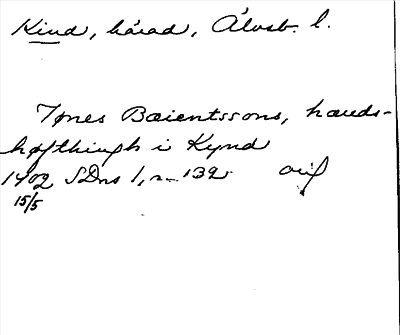 Kind, härad, Älvsb. l.
Jønes Bæientssons, hæreds-
høfthingh i Kynd
1402 SDns 1, n 132 orig
15/5